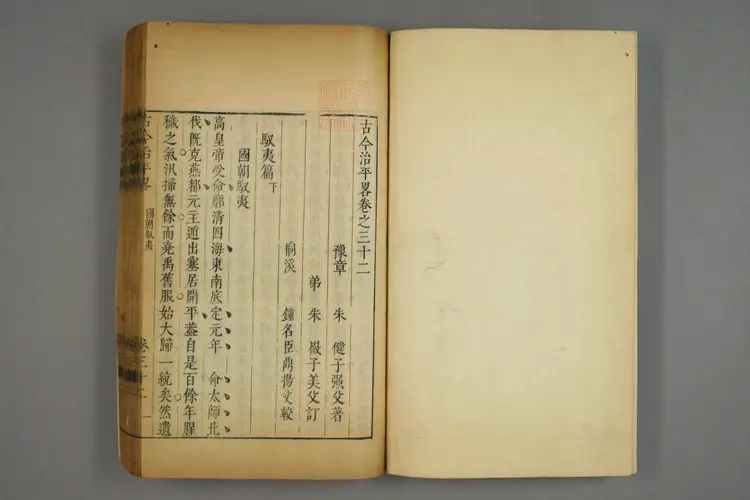 古今治平畧卷之三十二
豫章 朱 健子强父著
弟 朱 徽子美父訂
桐溪 鍾名臣鼎揚父較
馭夷篇下
國朝馭夷
高皇帝受命廓清四海東南底定元年 命太師北
伐旣克燕都元主遁出塞居開平葢自是百餘年腥
穢之氣汛掃無餘而堯禹舊服始大歸一統矣然遺
古今治平畧 國朝馭夷 卷三十二 一